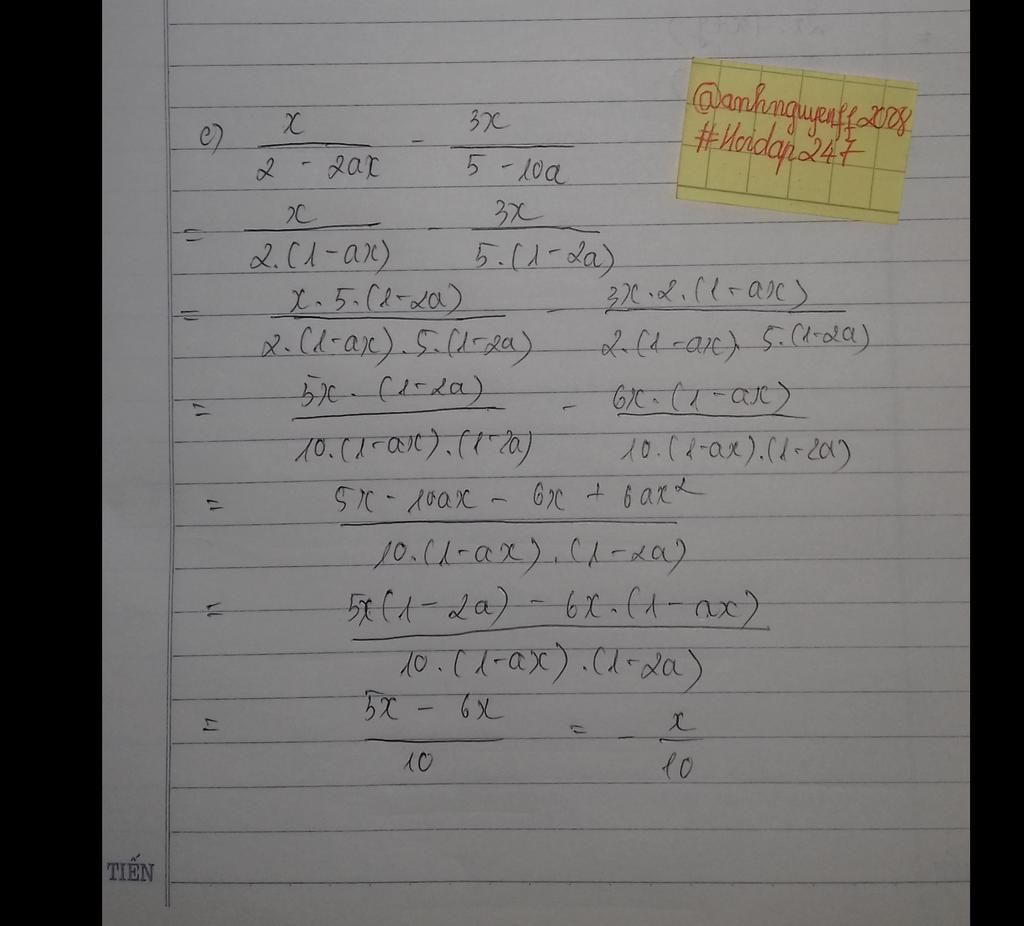 @anhnguyenff2008
#Hoidap247
e) x/(2 - 2ax) - 3x/(5 - 10a)
= x/(2.(1-ax)) - 3x/(5.(1-2a))
= x.5.(1-2a)/(2.(1-ax).5.(1-2a)) - 3x.2.(1-ax)/(2.(1-ax).5.(1-2a))
= 5x.(1-2a)/(10.(1-ax).(1-2a)) - 6x.(1-ax)/(10.(1-ax).(1-2a))
= (5x - 10ax - 6x + 6ax²)/(10.(1-ax).(1-2a))
= (5x(1-2a) - 6x.(1-ax))/(10.(1-ax).(1-2a))
= (5x - 6x)/10 = - x/10
TIẾN